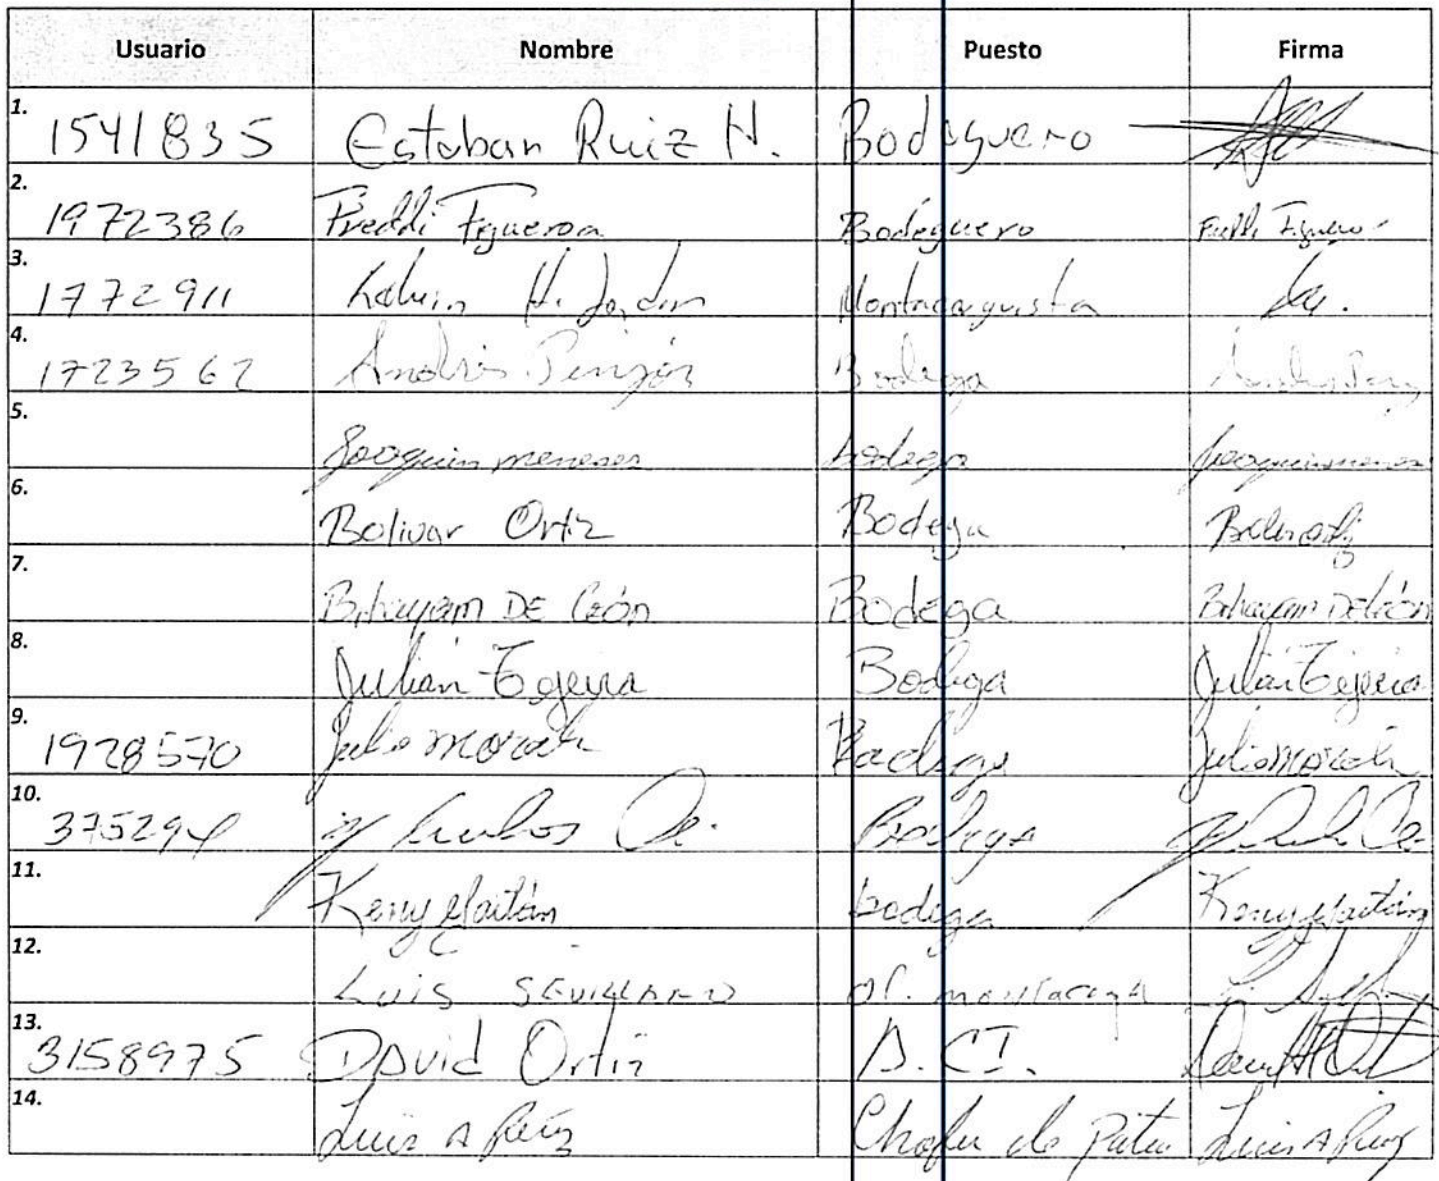 Usuario Nombre Puesto Firma
1. 1541835 Esteban Ruiz H. Bodeguero
2. 1972386 Freddi Figueroa Bodeguero Freddi Figueroa
3. 1772911 Kelvin H. Jordan Montacarguista
4. 1723562 Andrés Pinzón Bodega
5. Joaquin meneses bodega Joaquin meneses
6. Bolivar Ortiz Bodega
7. Bihayam DE León Bodega Bihayam De León
8. Julián Tejeira Bodega Julián Tejeira
9. 1928570 Julio morán Bodega Julio morán
10. 375294 Bodega
11. Keny Gaitán bodega Keny Gaitán
12. LUIS SEVILLANO OP. montacarga
13. 3158975 David Ortiz A. CI.
14. Luis A Ruiz Chofer de Patio Luis A Ruiz